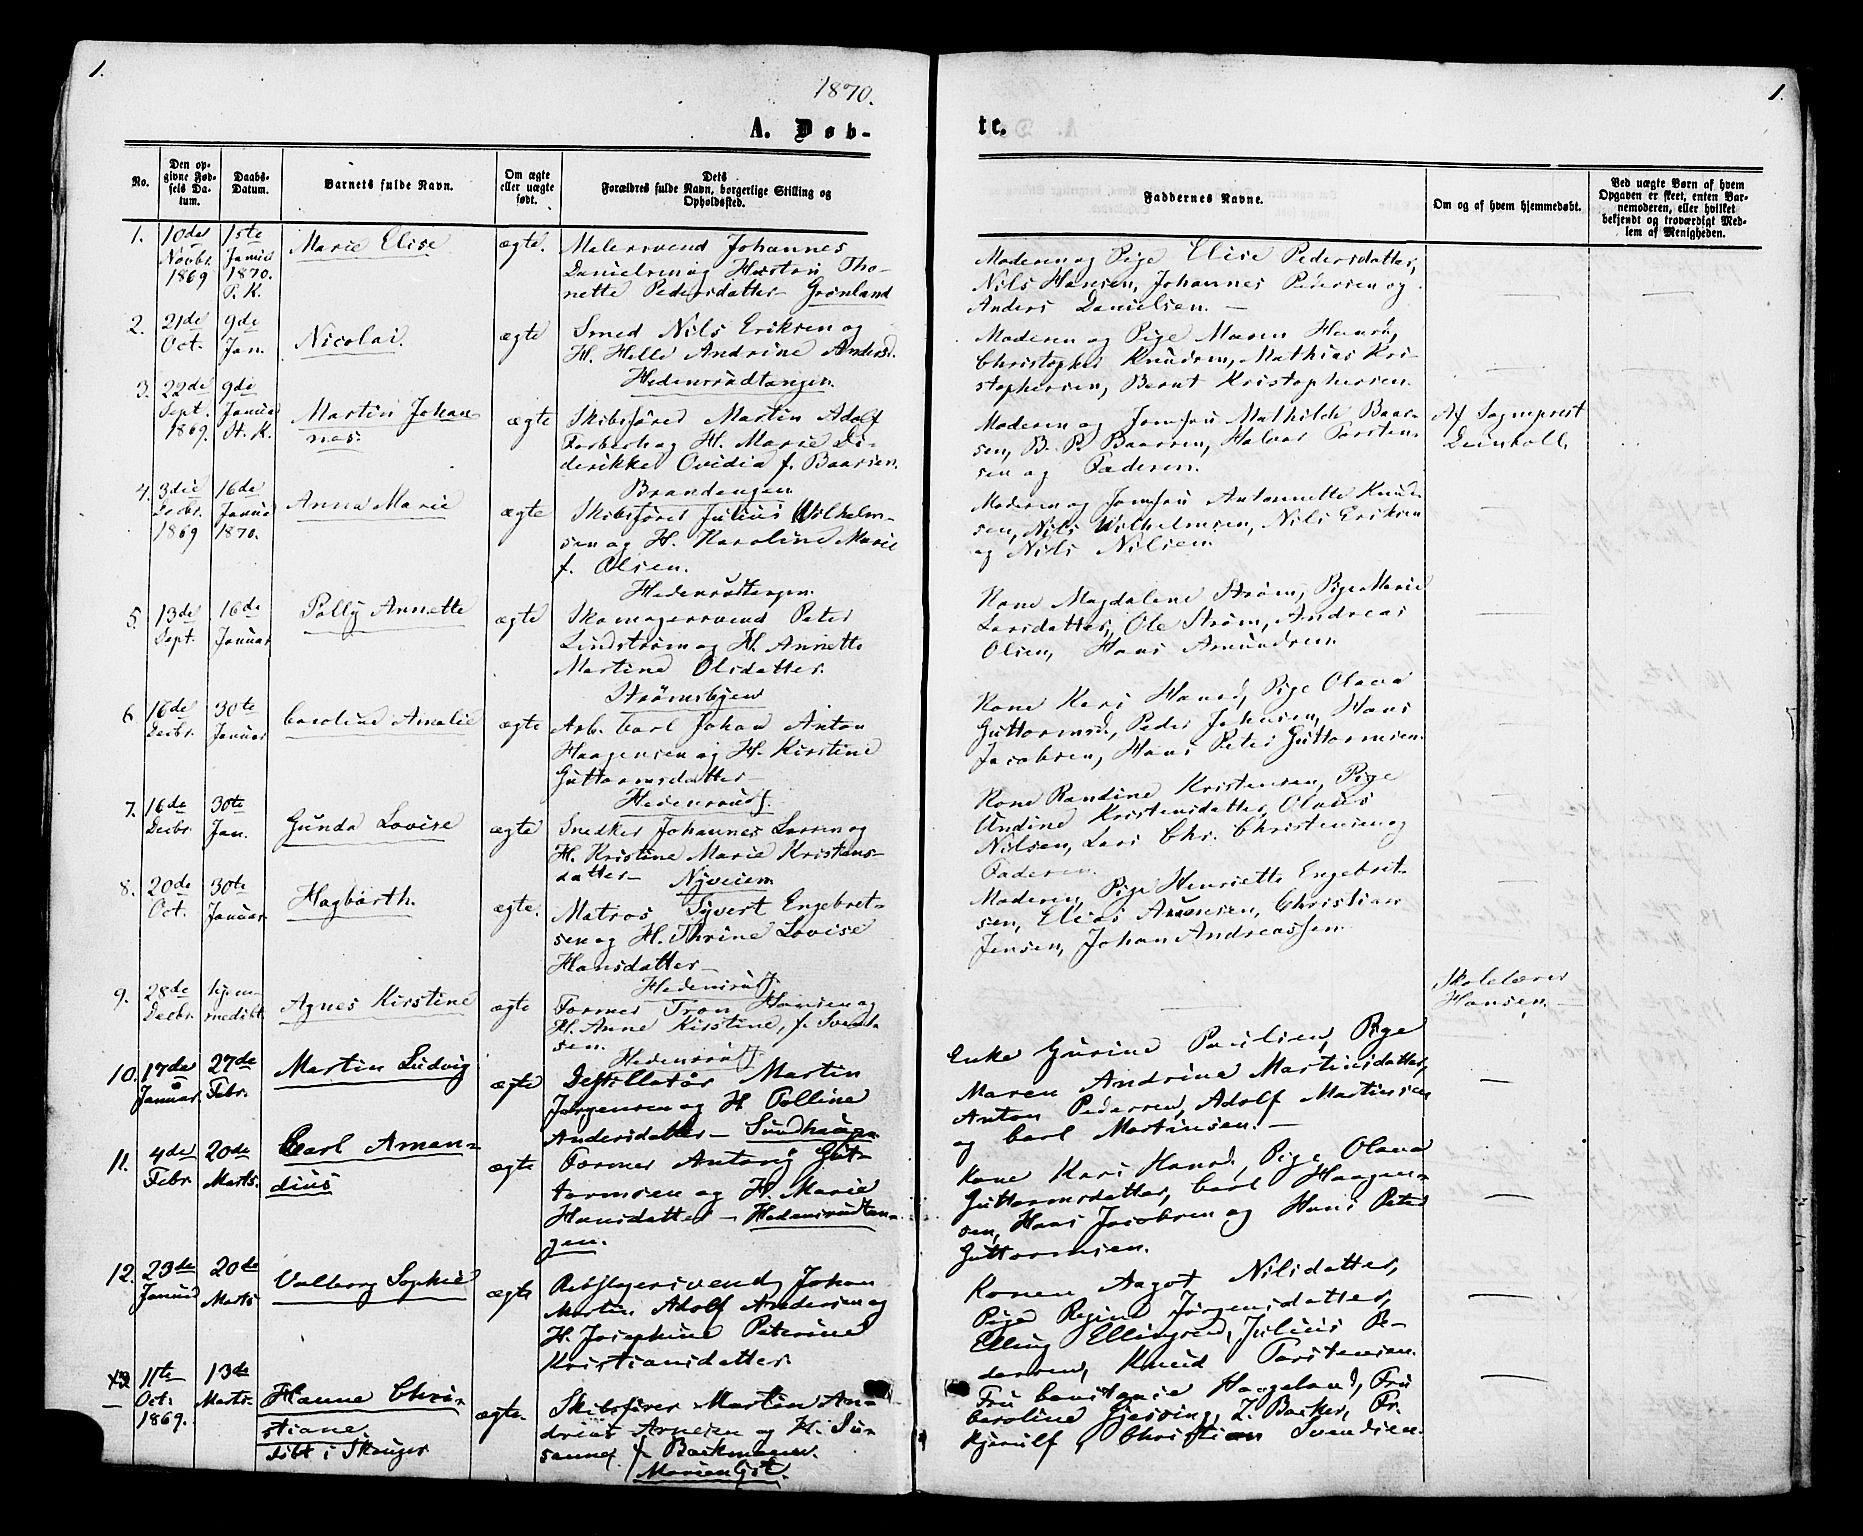 1.
1870.
1.
A. Døb-
te.
No.
Den op-
givne Fød-
sels Da-
tum.
Daabs-
Datum.
Barnets fulde Navn.
Om ægte
eller uægte
født.
Dets
Forældres fulde Navn, borgerlige Stilling og
Opholdssted.
Faddernes Navne.
Om og af hvem hjemmedøbt.
Ved uægte Børn af hvem
Opgaven er skeet, enten Bar-
nemoderen, eller hvilket
bekjendt og troværdigt Med-
lem af Menigheden.
1.
10de
Novbr.
1869
1ste
Januar
1870.
P. K.
Marie Elise
ægte.
Malersvend Johannes
Danielsen og Hustru Tho-
nette Pedersdatter Grønland
Moderen og Pige Elise Pedersdatter,
Nils Hansen, Johannes Pedersen og
Anders Danielsen. —
2.
21de
Oct.
9de
Jan.
Nicolai
ægte
Smed Nils Eriksen og
H. Helle Andrine Andersd.
Hedensrudtangen
Moderen og Pige Maren Hansd,
Christopher Knudsen, Mathias Kri-
stophersen, Bernt Kristophersen.
3.
22de
Sept.
1869.
9de
Januar
St. K.
Martin Johan-
nes.
ægte
Skibsfører Martin Adolf
og H. Marie Di-
derikke Ovidia f. Baarsen.
Brandengen
Moderen og Jomfru Mathilde Baar-
sen, B. P. Baarsen, Halvor Torsten-
sen og Faderen.
Af Sogneprest
Deinboll.
4.
3die
Decbr.
1869
16de
Januar
1870.
Anna Marie
ægte
Skibsfører Julius Wilhelm-
sen og H. Karoline Marie
f. Olsen.
Hedensrudtangen.
Moderen og Jomfru Antonnette Knud-
sen, Nils Wilhelmsen, Nils Eriksen
og Nils Nilsen.
5.
13de
Sept.
16de
Januar
Polly Annette
ægte
Skomagersvend Peter
Lindstrøm og H. Annette
Martine Olsdatter.
Strømsbyen
Kone Magdalene Strøm, Pige Marie
Larsdatter, Ole Strøm, Andreas
Olsen, Hans Amundsen.
6.
16de
Decbr.
30te
Januar
Caroline Amalie
ægte
Arb. Carl Johan Anton
Haagensen og H. Kirstine
Guttormsdatter
Hedensrudt.
Kone Kari Hansd, Pige Olava
Guttormsd, Peder Johnsen, Hans
Jacobsen, Hans Peter Guttormsen.
7.
16de
Decbr.
30te
Jan.
Gunda Lovise
ægte
Snedker Johannes Larsen og
H. Kristine Marie Kristens-
datter Nyveien
Kone Randine Kristensen, Pige
Andine Kristensdatter, Olaus
Nilsen, Lars Chr. Christensen og
Faderen.
8.
20de
Oct.
30te
Januar.
Hagbarth.
ægte.
Matros Syvert Engebret-
sen og H. Thrine Lovise
Hansdatter—
Hedensrudt.
Moderen, Pige Henriette Engebret-
sen, Elias Amonsen, Christian
Jensen, Johan Andreassen.
9.
28de
Decbr.
hjem-
medøbt.
Agnes Kirstine
ægte
Former Tron Hansen og
H. Anne Kirstine, f. Svend-
sen. Hedensrudt.
Skolelærer
Hansen.
10.
17de
Januar.
27de
Febr.
Martin Ludvig
ægte
Destillatør Martin
Jørgensen og H. Polline
Andersdatter — Sundhaugen
Enke Gurine Paulsen, Pige
Maren Andrine Martinsdatter,
Anton Pedersen, Adolf Martinsen
og Carl Martinsen.—
11.
4de
Febr.
20de
Marts.
Carl Aman-
dius
ægte
Former Anton Gut-
tormsen og H. Marie
Hansdatter — Hedensrudtan-
gen.
Kone Kari Hansd, Pige Olava
Guttormsdatter, Carl Haagen-
sen, Hans Jacobsen og Hans Peter
Guttormsen.
12.
23de
Januar
20de
Marts
Valborg Sophie
ægte
Rebslagersvend Johan
Martin Adolf Andersen og
H. Josephine Peterine
Kristiansdatter.
Konen Aagot Nilsdatter,
Pige Regine Jørgensdatter,
Elling Ellingsen, Julius Pe-
dersen, Knud Torstensen.
13
11te
Oct.
1869.
13de
Marts.
Hanne Chri-
stiane
døbt i Skauger
ægte.
Skibsfører Martin An-
dreas Arnesen og H. Su-
sanne f. Backmann.
Marienlyst.
Fru Constance Haageland, Fru
Caroline Gjessing, Z. Backer, Fr.
Kjerulf, Christian Svendsen.